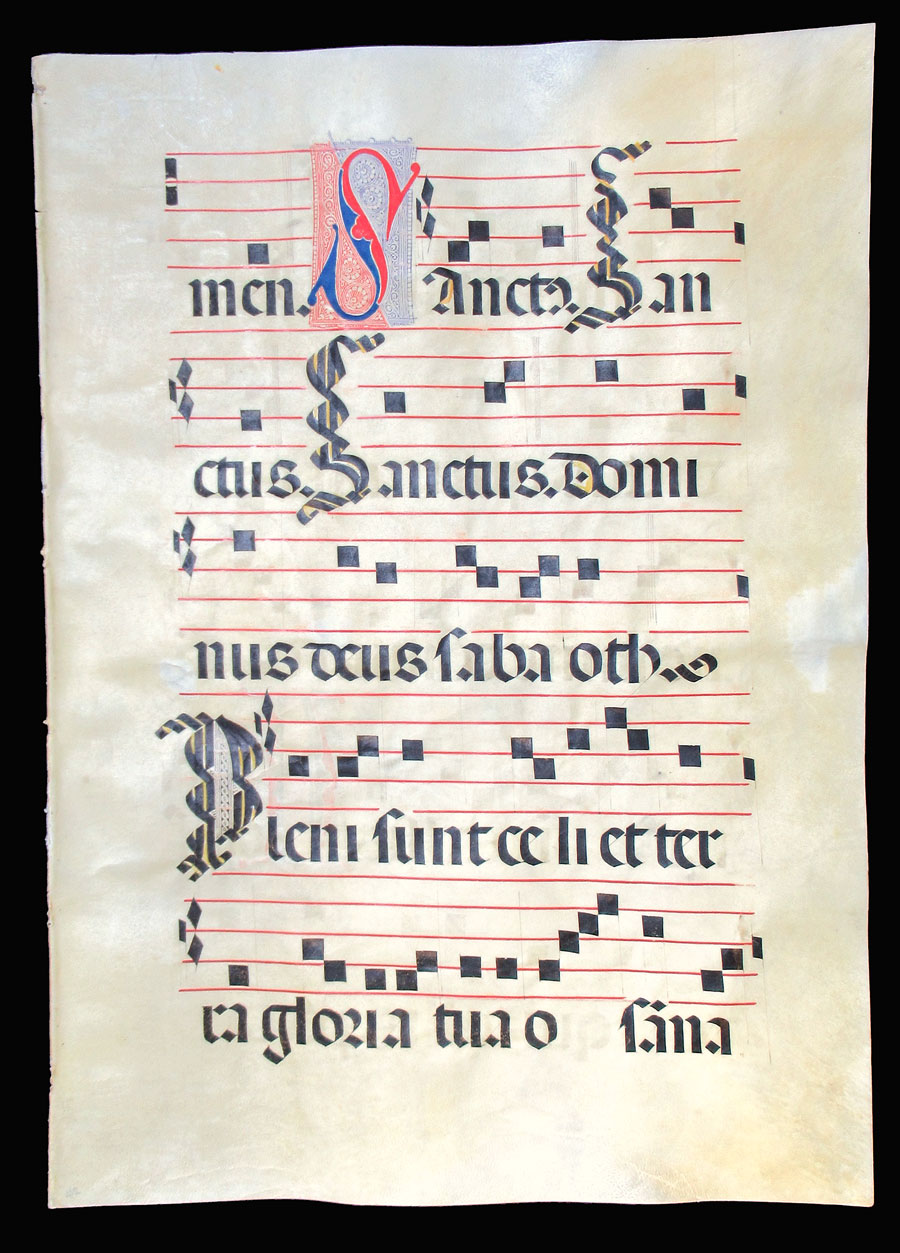 men. Sanctꝰ. San
ctus. Sanctus. Domi
nus deus ſaba oth
Pleni ſunt ce li et ter
ra gloria tua o ſāna